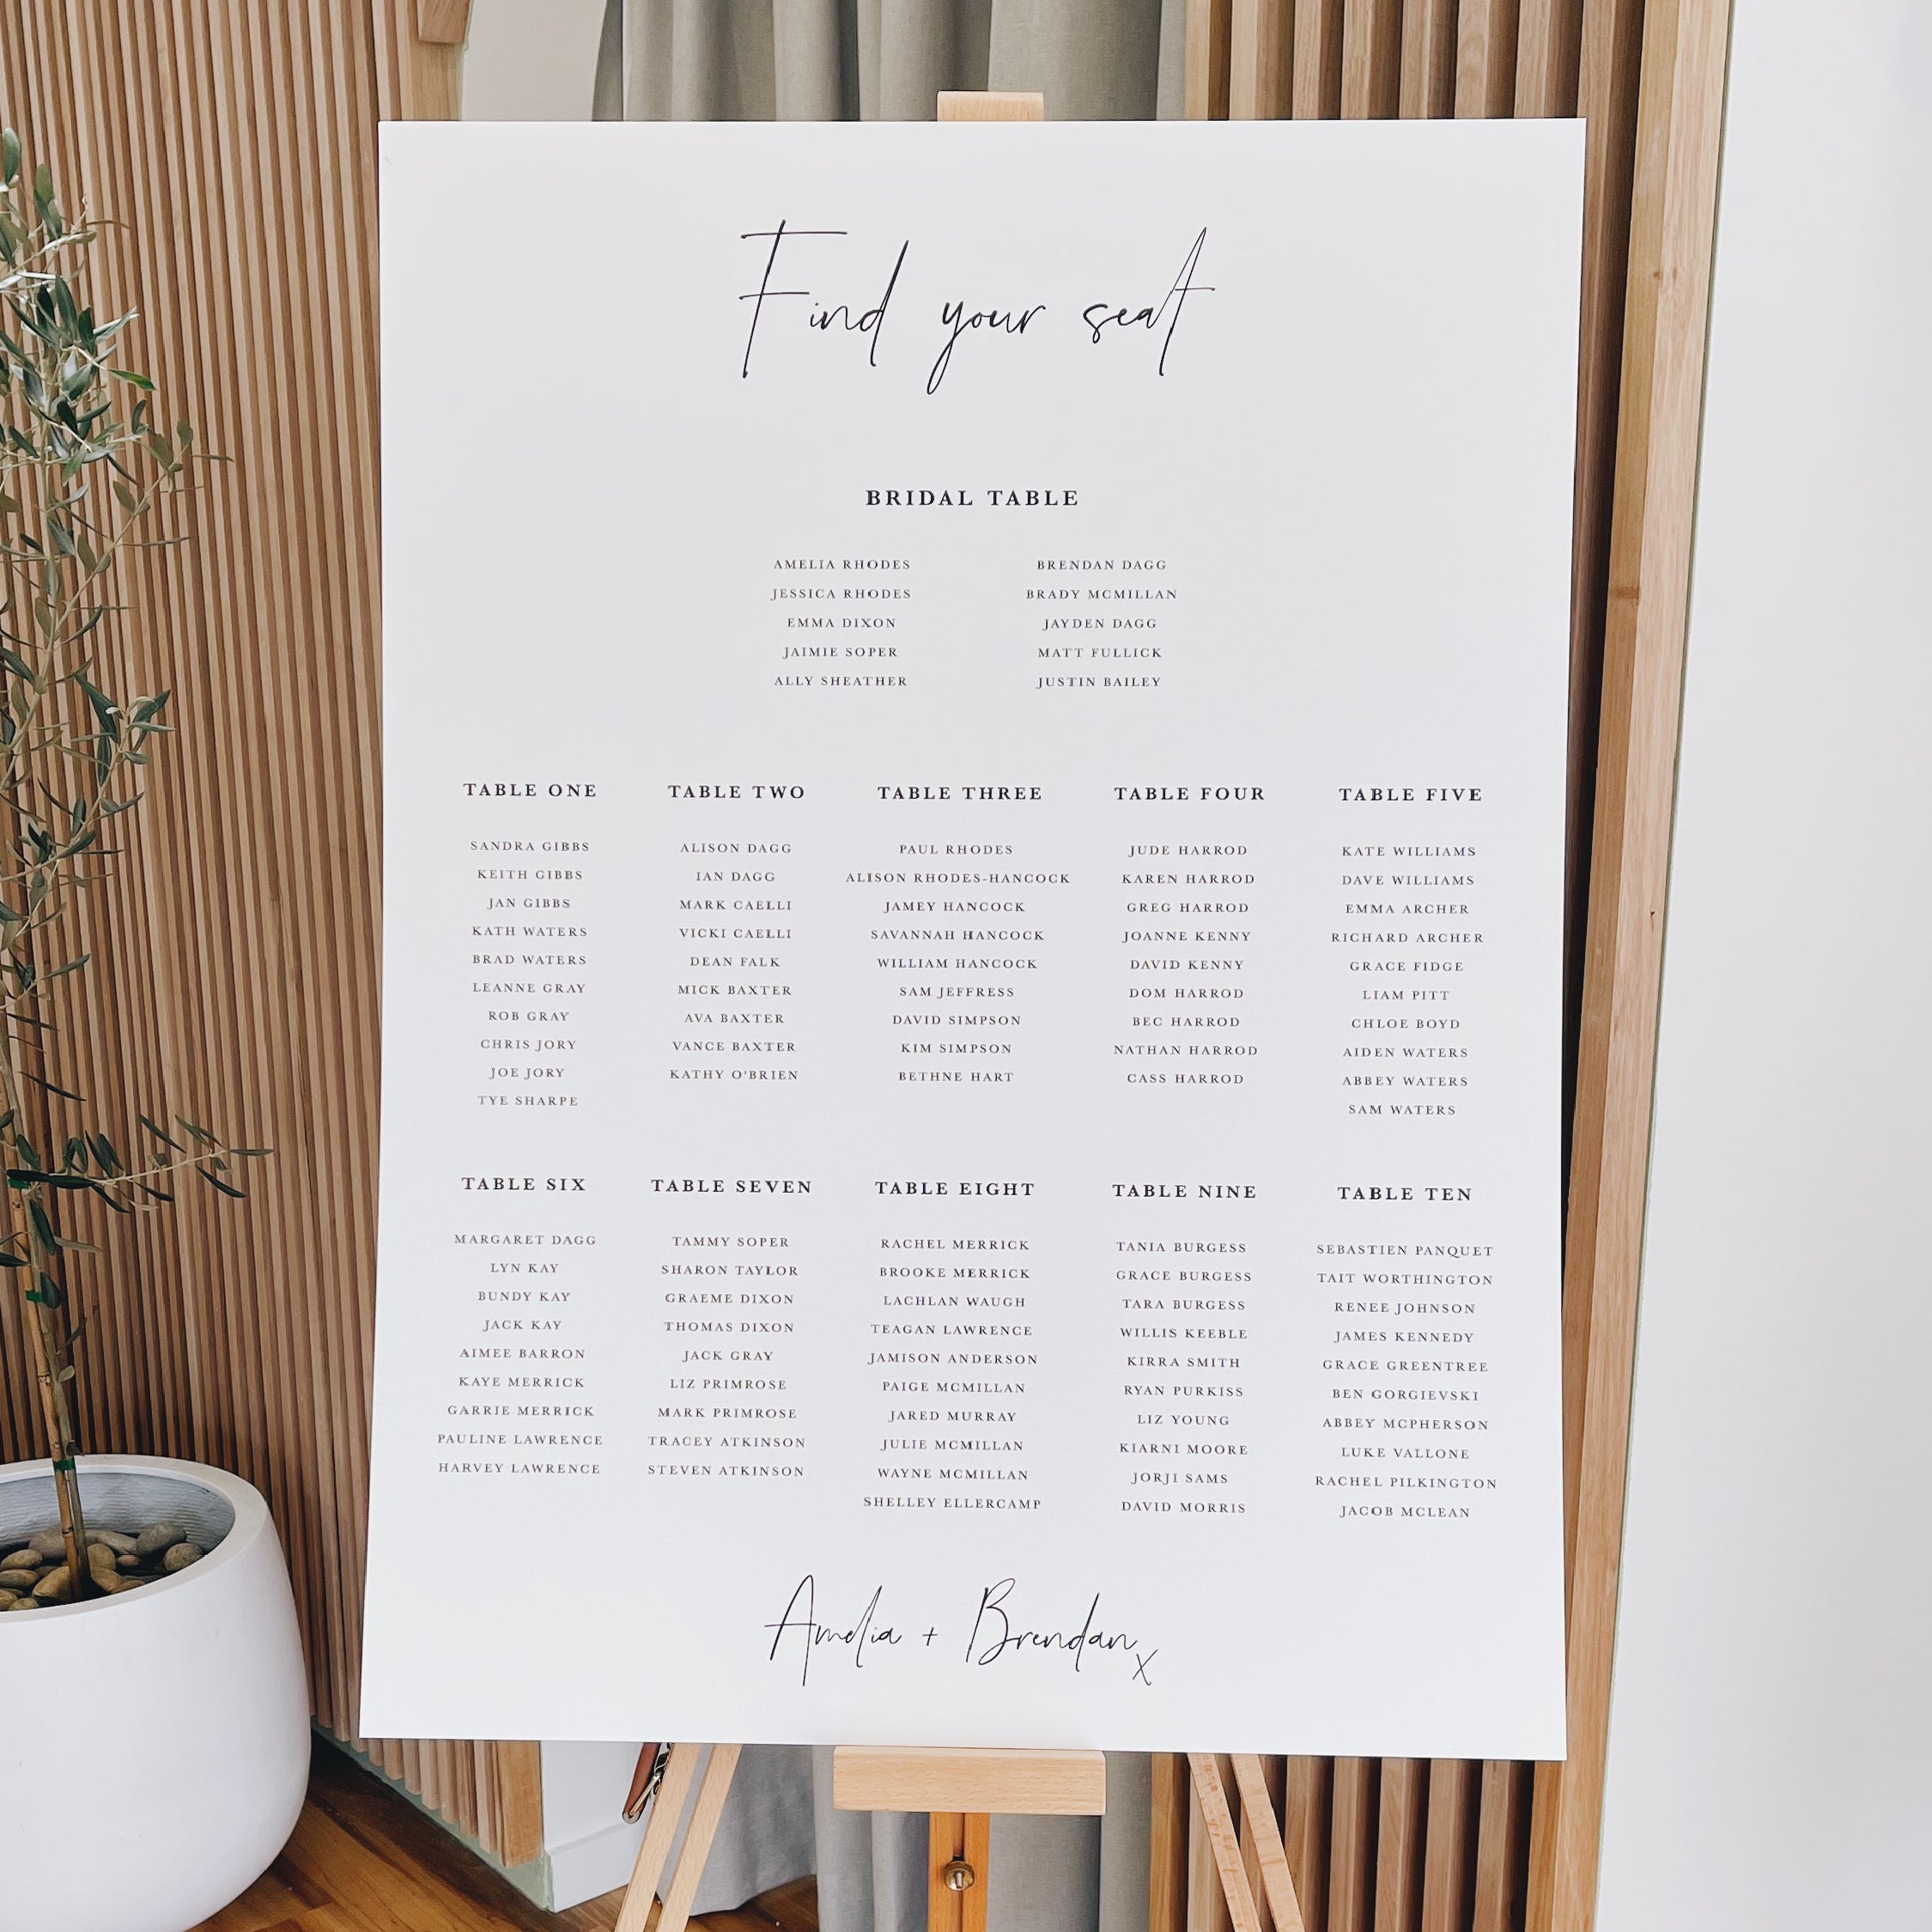 Find your seat
BRIDAL TABLE
AMELIA RHODES BRENDAN DAGG
JESSICA RHODES BRADY MCMILLAN
EMMA DIXON JAYDEN DAGG
JAIMIE SOPER MATT FULLICK
ALLY SHEATHER JUSTIN BAILEY
TABLE ONE
SANDRA GIBBS
KEITH GIBBS
JAN GIBBS
KATH WATERS
BRAD WATERS
LEANNE GRAY
ROB GRAY
CHRIS JORY
JOE JORY
TYE SHARPE
TABLE TWO
ALISON DAGG
IAN DAGG
MARK CAELLI
VICKI CAELLI
DEAN FALK
MICK BAXTER
AVA BAXTER
VANCE BAXTER
KATHY O'BRIEN
TABLE THREE
PAUL RHODES
ALISON RHODES-HANCOCK
JAMEY HANCOCK
SAVANNAH HANCOCK
WILLIAM HANCOCK
SAM JEFFRESS
DAVID SIMPSON
KIM SIMPSON
BETHNE HART
TABLE FOUR
JUDE HARROD
KAREN HARROD
GREG HARROD
JOANNE KENNY
DAVID KENNY
DOM HARROD
BEC HARROD
NATHAN HARROD
CASS HARROD
TABLE FIVE
KATE WILLIAMS
DAVE WILLIAMS
EMMA ARCHER
RICHARD ARCHER
GRACE FIDGE
LIAM PITT
CHLOE BOYD
AIDEN WATERS
ABBEY WATERS
SAM WATERS
TABLE SIX
MARGARET DAGG
LYN KAY
BUNDY KAY
JACK KAY
AIMEE BARRON
KAYE MERRICK
GARRIE MERRICK
PAULINE LAWRENCE
HARVEY LAWRENCE
TABLE SEVEN
TAMMY SOPER
SHARON TAYLOR
GRAEME DIXON
THOMAS DIXON
JACK GRAY
LIZ PRIMROSE
MARK PRIMROSE
TRACEY ATKINSON
STEVEN ATKINSON
TABLE EIGHT
RACHEL MERRICK
BROOKE MERRICK
LACHLAN WAUGH
TEAGAN LAWRENCE
JAMISON ANDERSON
PAIGE MCMILLAN
JARED MURRAY
JULIE MCMILLAN
WAYNE MCMILLAN
SHELLEY ELLERCAMP
TABLE NINE
TANIA BURGESS
GRACE BURGESS
TARA BURGESS
WILLIS KEEBLE
KIRRA SMITH
RYAN PURKISS
LIZ YOUNG
KIARNI MOORE
JORJI SAMS
DAVID MORRIS
TABLE TEN
SEBASTIEN PANQUET
TAIT WORTHINGTON
RENEE JOHNSON
JAMES KENNEDY
GRACE GREENTREE
BEN GORGIEVSKI
ABBEY MCPHERSON
LUKE VALLONE
RACHEL PILKINGTON
JACOB MCLEAN
Amelia + Brendan x